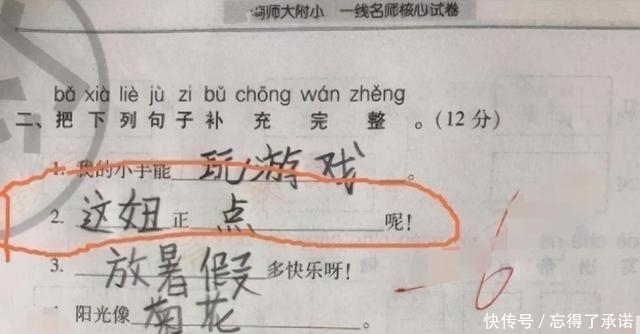 师大附小 一线名师核心试卷
bǎ xià liè jù zi bǔ chōng wán zhěng
二、把下列句子补充完整。(12分)
1. 我的小手能 玩游戏 。
2. 这妞正 点 呢!
3. 放暑假 多快乐呀!
阳光像 菊花 。
-6
快传号/忘得了承诺